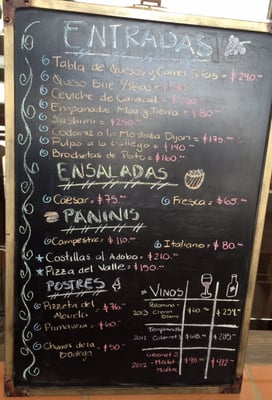 ENTRADAS
Tabla de Quesos y Carnes Frias = $240.-
Queso Brie y Peras =
Ceviche de Caracol =
Empanadas Mar y Tierra = $80.-
Sashimi = $250.-
Codorniz a la Mostaza Dijon = $175.-
Pulpo a la Gallega = $140.-
Brochetas de Pato = $160.-
ENSALADAS
Caesar = $75.- Fresca = $65.-
PANINIS
Campestre = $110.- Italiano = $80.-
Costillas al Adobo = $210.-
Pizza del Valle = $150.-
POSTRES
Pizzeta del Abuelo = $70.-
Primavera = $60.-
Churros de la Bodega = $50.-
VINOS
2013
Tempranillo
2011 Cabernet $68.- $285.-
Cabernet
2012 - Merlot $98.- $412.-
Malbec